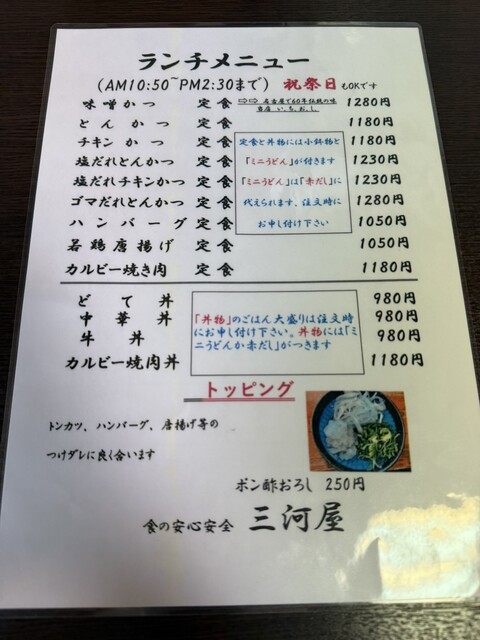 ランチメニュー
(AM10:50~PM2:30まで) 祝祭日もOKです
味噌かつ 定食 ⇨⇨ 名古屋で60年伝統の味 当店 い、ち、お、し、 1280円
とんかつ 定食 1180円
チキンかつ 定食 1180円
塩だれとんかつ 定食 1230円
塩だれチキンかつ 定食 1230円
ゴマだれとんかつ 定食 1280円
ハンバーグ 定食 1050円
若鶏唐揚げ 定食 1050円
カルビー焼き肉 定食 1180円
定食と丼物には小鉢物と
「ミニうどん」が付きます
「ミニうどん」は「赤だし」に
代えられます、注文時に
お申し付け下さい
どて丼 980円
中華丼 980円
牛丼 980円
カルビー焼肉丼 1180円
「丼物」のごはん大盛りは注文時
にお申し付け下さい。丼物には「ミ
ニうどんか赤だし」がつきます
トッピング
トンカツ、ハンバーグ、唐揚げ等の
つけダレに良く合います
ポン酢おろし 250円
食の安心安全 三河屋